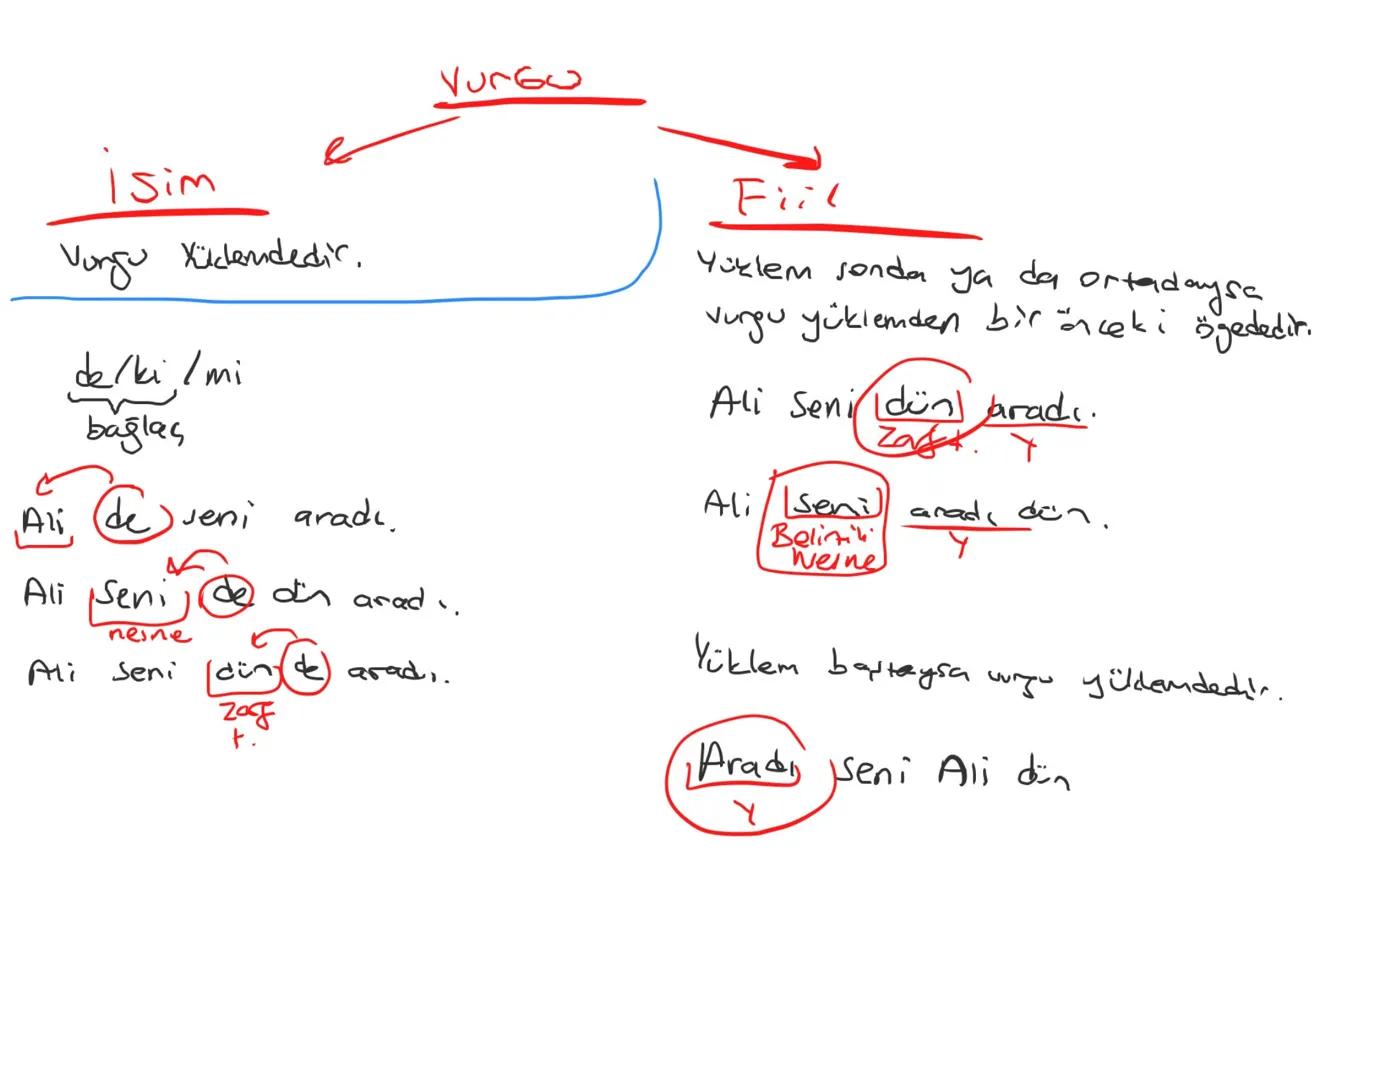 Vurgu
İsim
Vurgu Yüklemdedir.
de/ki/mi
bağlaç
Ali de seni aradı.
Ali seni de dün aradı.
nesne
Ali seni dün de aradı.
Zarf
t.
Fiil
Yüklem sonda ya da ortadaysa
vurgu yüklemden bir önceki ögededir.
Ali seni dün aradı.
Zarf t. Y
Ali seni aradı dün.
Belirtili Y
Nesne
Yüklem baştaysa vurgu yüklemdedir.
Aradı seni Ali dün
Y